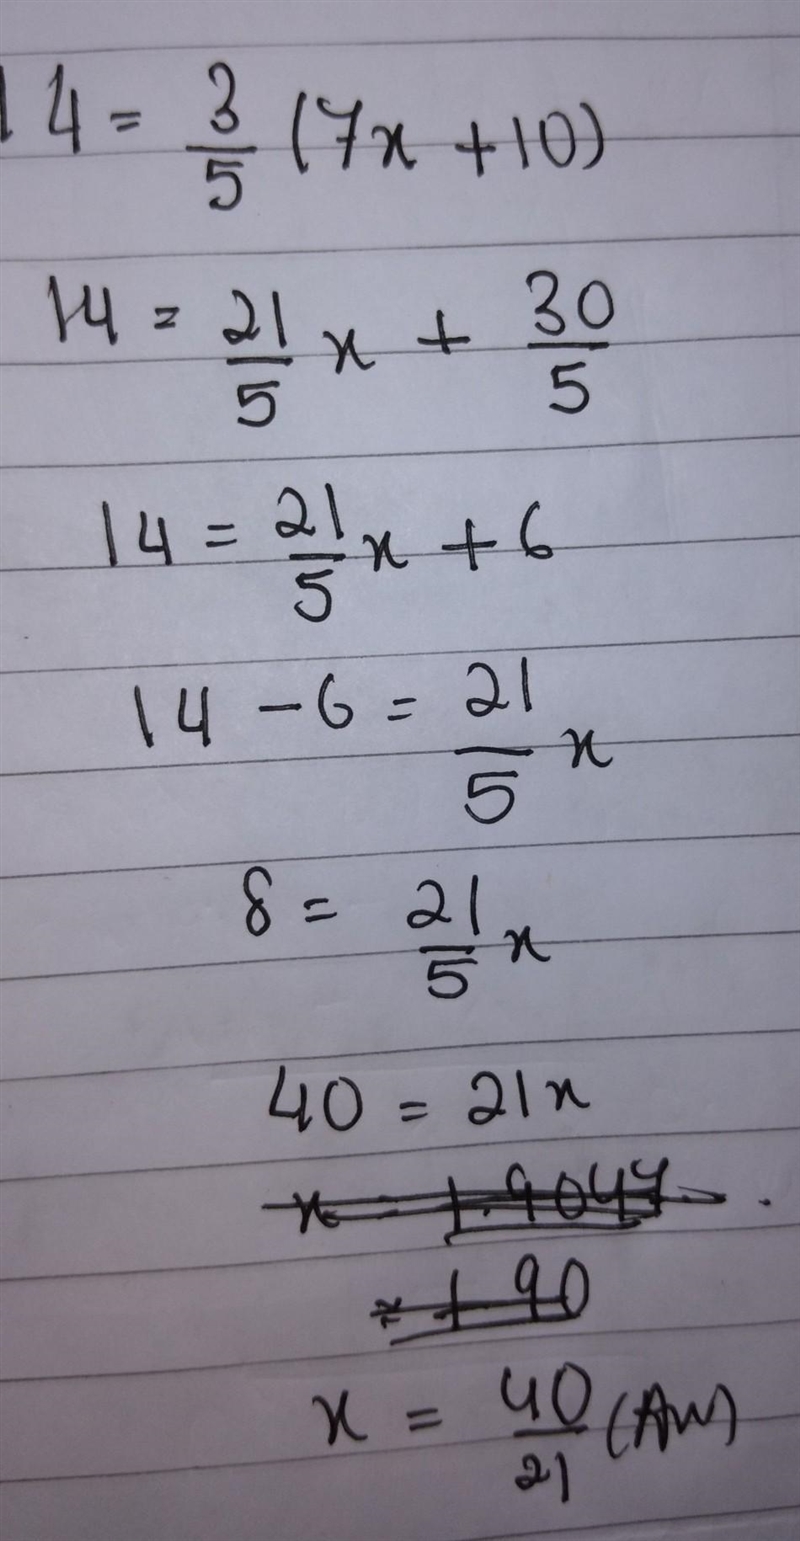 14 = 3/5 (7x + 10)
14 = 21/5 x + 30/5
14 = 21/5 x + 6
14 - 6 = 21/5 x
8 = 21/5 x
40 = 21x
x = 1.9047
= 1.90
x = 40/21 (Ans)